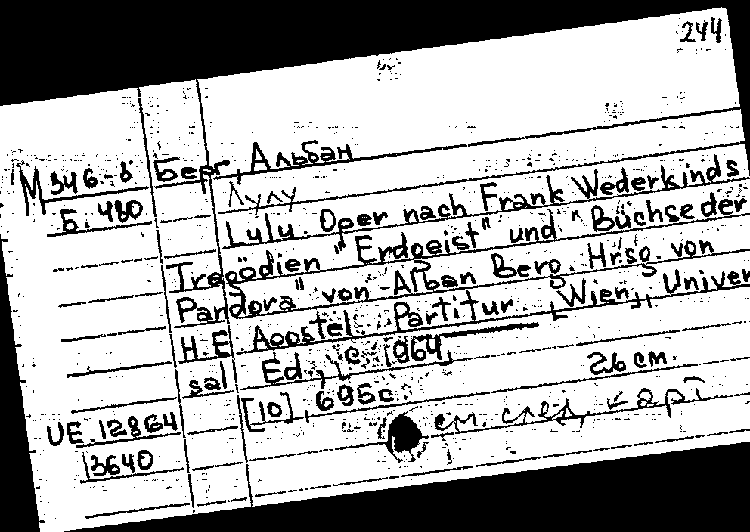 244
М346-в Берг, Альбан
Б. 480 Лулу
Lulu. Oper nach Frank Wederkinds
Tragödien "Erdgeist" und "Büchse der
Pandora" von Alban Berg. Hrsg. von
H. E. Apostel. Partitur. [Wien], Univer
sal Ed., [c. 1964]
[10], 695 с. 26 см.
UE.12864 см. след. карт
13640